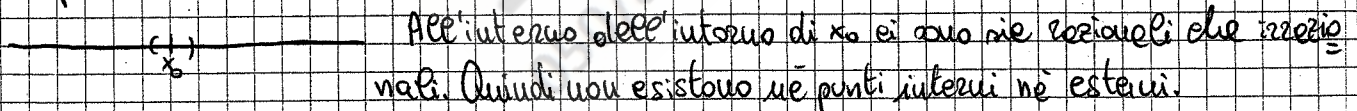 All'interno dell'intorno di x₀ ci sono sia razionali che irrazio
nali. Quindi non esistono né punti interni nè esterni.
( )
x₀